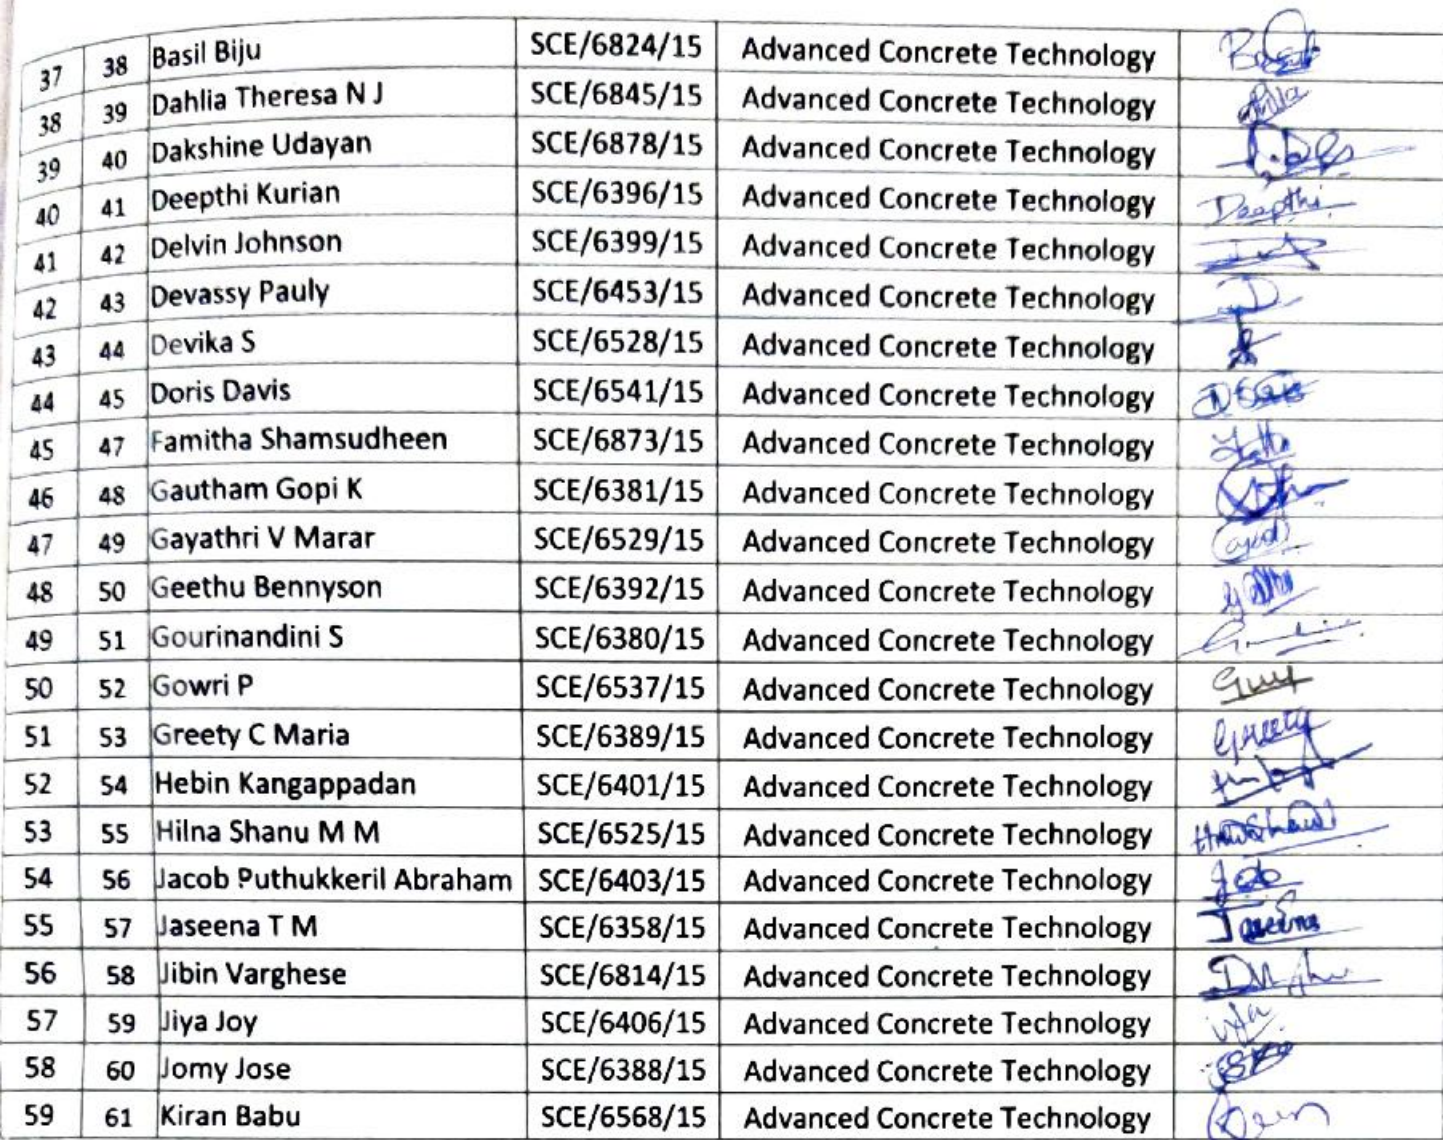 37 38 Basil Biju SCE/6824/15 Advanced Concrete Technology
38 39 Dahlia Theresa N J SCE/6845/15 Advanced Concrete Technology
39 40 Dakshine Udayan SCE/6878/15 Advanced Concrete Technology
40 41 Deepthi Kurian SCE/6396/15 Advanced Concrete Technology Deepthi
41 42 Delvin Johnson SCE/6399/15 Advanced Concrete Technology
42 43 Devassy Pauly SCE/6453/15 Advanced Concrete Technology
43 44 Devika S SCE/6528/15 Advanced Concrete Technology
44 45 Doris Davis SCE/6541/15 Advanced Concrete Technology
45 47 Famitha Shamsudheen SCE/6873/15 Advanced Concrete Technology
46 48 Gautham Gopi K SCE/6381/15 Advanced Concrete Technology
47 49 Gayathri V Marar SCE/6529/15 Advanced Concrete Technology
48 50 Geethu Bennyson SCE/6392/15 Advanced Concrete Technology
49 51 Gourinandini S SCE/6380/15 Advanced Concrete Technology
50 52 Gowri P SCE/6537/15 Advanced Concrete Technology
51 53 Greety C Maria SCE/6389/15 Advanced Concrete Technology Greety
52 54 Hebin Kangappadan SCE/6401/15 Advanced Concrete Technology
53 55 Hilna Shanu M M SCE/6525/15 Advanced Concrete Technology
54 56 Jacob Puthukkeril Abraham SCE/6403/15 Advanced Concrete Technology
55 57 Jaseena T M SCE/6358/15 Advanced Concrete Technology Jaseena
56 58 Jibin Varghese SCE/6814/15 Advanced Concrete Technology
57 59 Jiya Joy SCE/6406/15 Advanced Concrete Technology
58 60 Jomy Jose SCE/6388/15 Advanced Concrete Technology
59 61 Kiran Babu SCE/6568/15 Advanced Concrete Technology